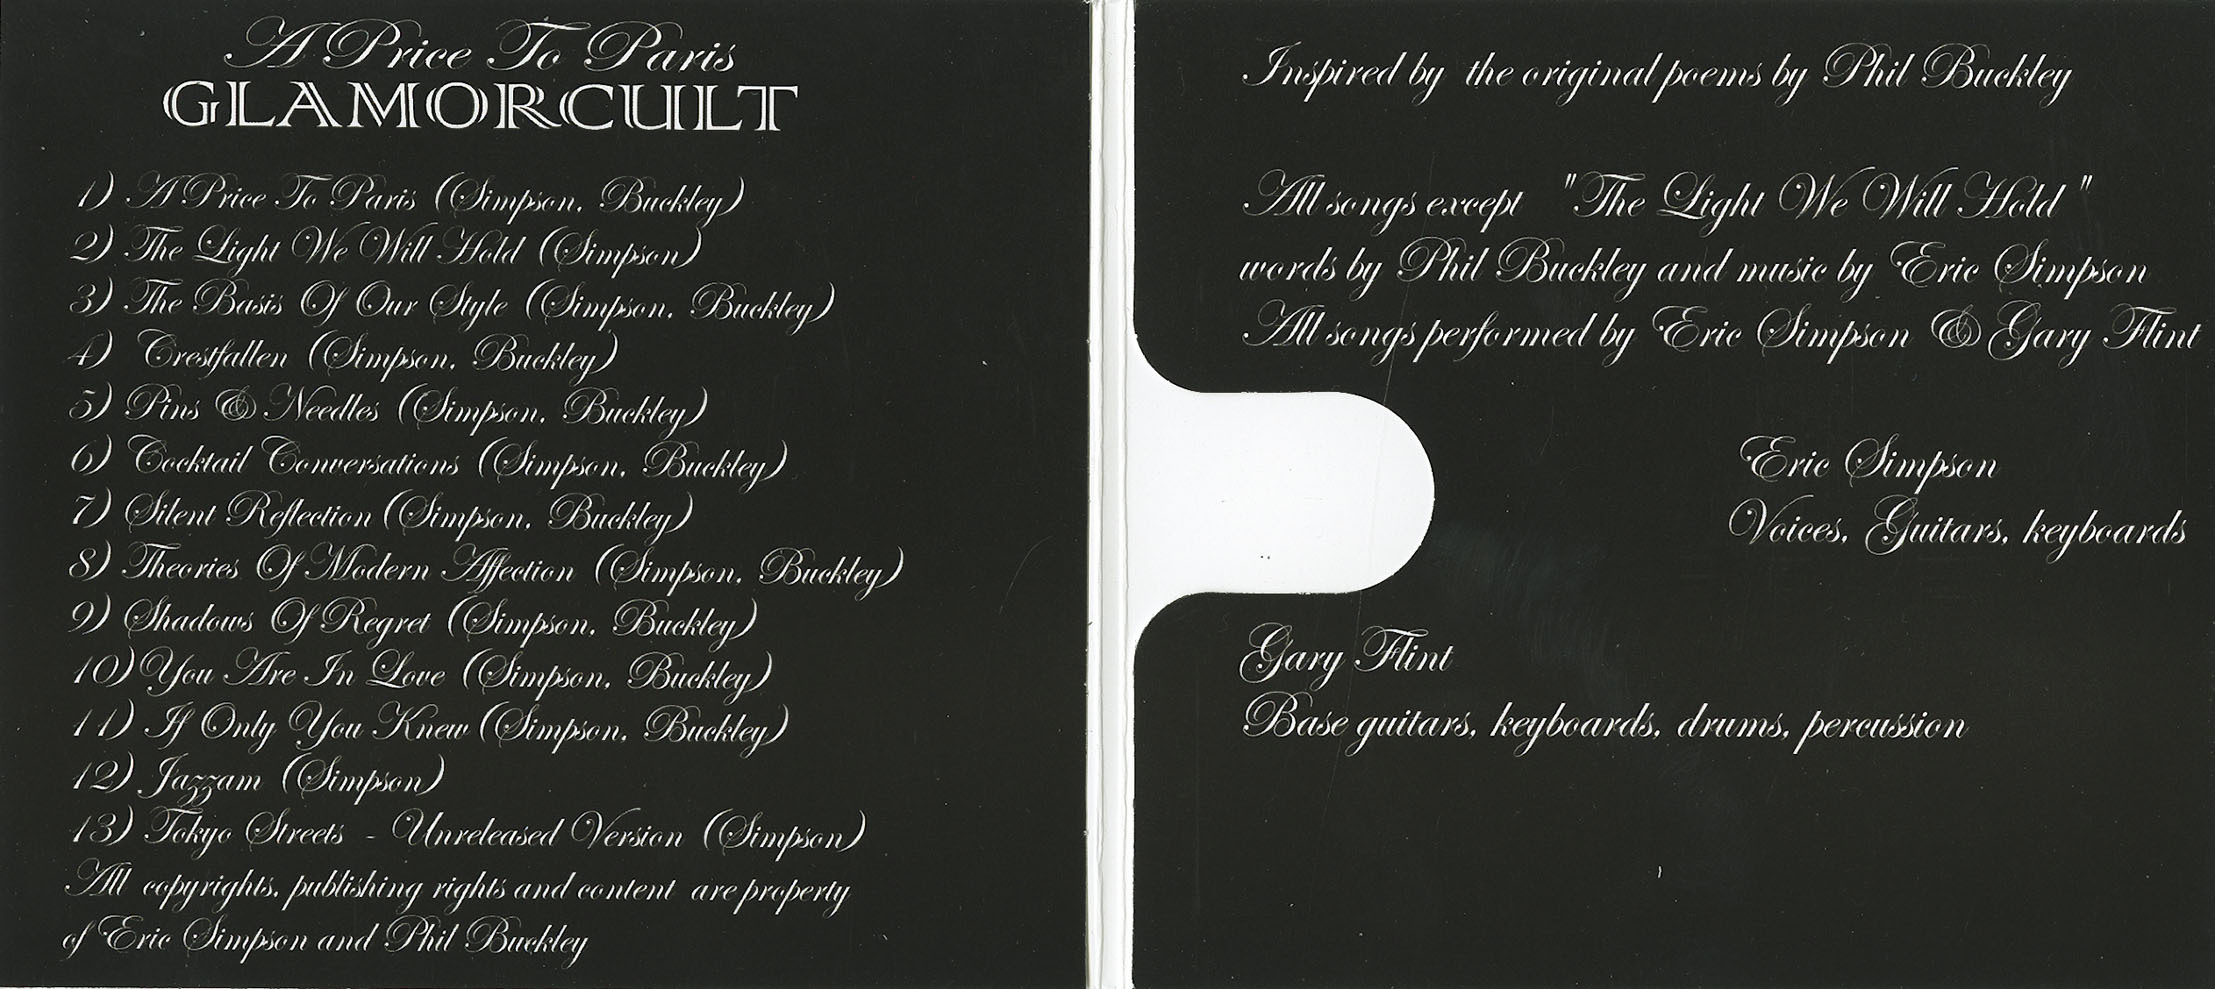 A Price To Paris
GLAMORCULT
1) A Price To Paris (Simpson, Buckley)
2) The Light We Will Hold (Simpson)
3) The Basis Of Our Style (Simpson, Buckley)
4) Crestfallen (Simpson, Buckley)
5) Pins & Needles (Simpson, Buckley)
6) Cocktail Conversations (Simpson, Buckley)
7) Silent Reflection (Simpson, Buckley)
8) Theories Of Modern Affection (Simpson, Buckley)
9) Shadows Of Regret (Simpson, Buckley)
10) You Are In Love (Simpson, Buckley)
11) If Only You Knew (Simpson, Buckley)
12) Jazzam (Simpson)
13) Tokyo Streets - Unreleased Version (Simpson)
All copyrights, publishing rights and content are property
of Eric Simpson and Phil Buckley
Inspired by the original poems by Phil Buckley
All songs except "The Light We Will Hold"
words by Phil Buckley and music by Eric Simpson
All songs performed by Eric Simpson & Gary Flint
Eric Simpson
Voices, Guitars, keyboards
Gary Flint
Base guitars, keyboards, drums, percussion